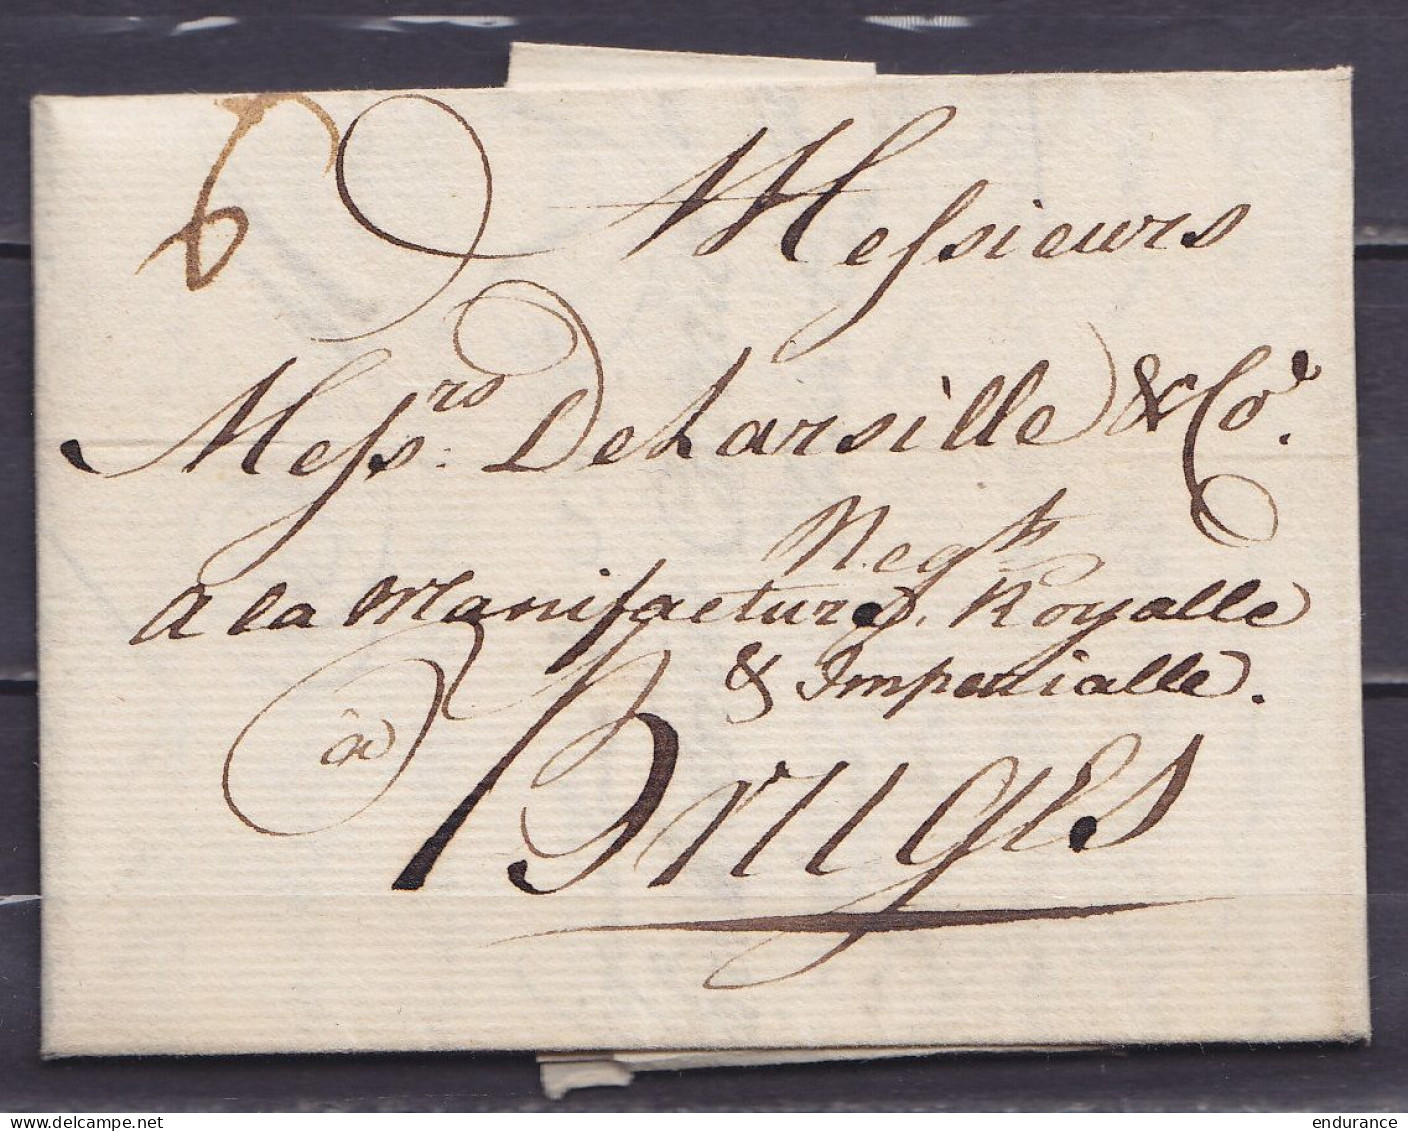 6
Messieurs
Mess.rs DeLarsille & Co.
Neg.ts
A la Manifacture Royalle
& Imperialle.
à
Bruges
endurance